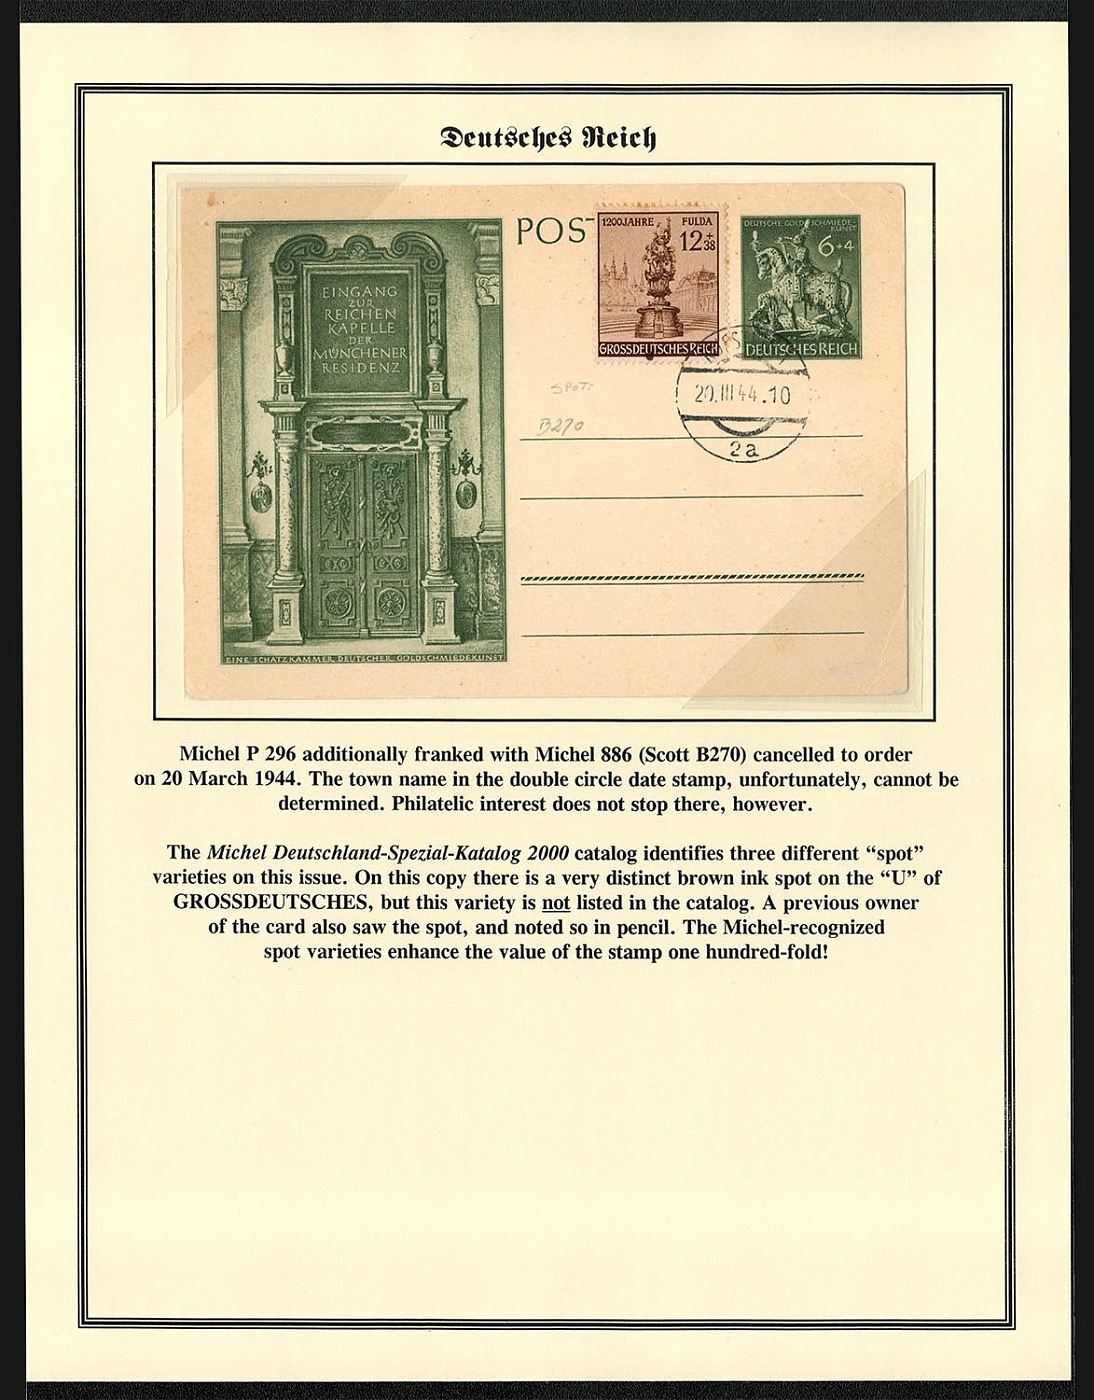 Deutsches Reich
EINGANG
ZUR
REICHEN
KAPELLE
DER
MÜNCHENER
RESIDENZ
EINE SCHATZKAMMER DEUTSCHER GOLDSCHMIEDEKUNST
POST
1200JAHRE FULDA
12+38
GROSSDEUTSCHES REICH
DEUTSCHE GOLDSCHMIEDE-
KUNST
6+4
DEUTSCHES REICH
20.III 44.10
2a
SPOT:
B270
Michel P 296 additionally franked with Michel 886 (Scott B270) cancelled to order
on 20 March 1944. The town name in the double circle date stamp, unfortunately, cannot be
determined. Philatelic interest does not stop there, however.
The Michel Deutschland-Spezial-Katalog 2000 catalog identifies three different “spot”
varieties on this issue. On this copy there is a very distinct brown ink spot on the “U” of
GROSSDEUTSCHES, but this variety is not listed in the catalog. A previous owner
of the card also saw the spot, and noted so in pencil. The Michel-recognized
spot varieties enhance the value of the stamp one hundred-fold!